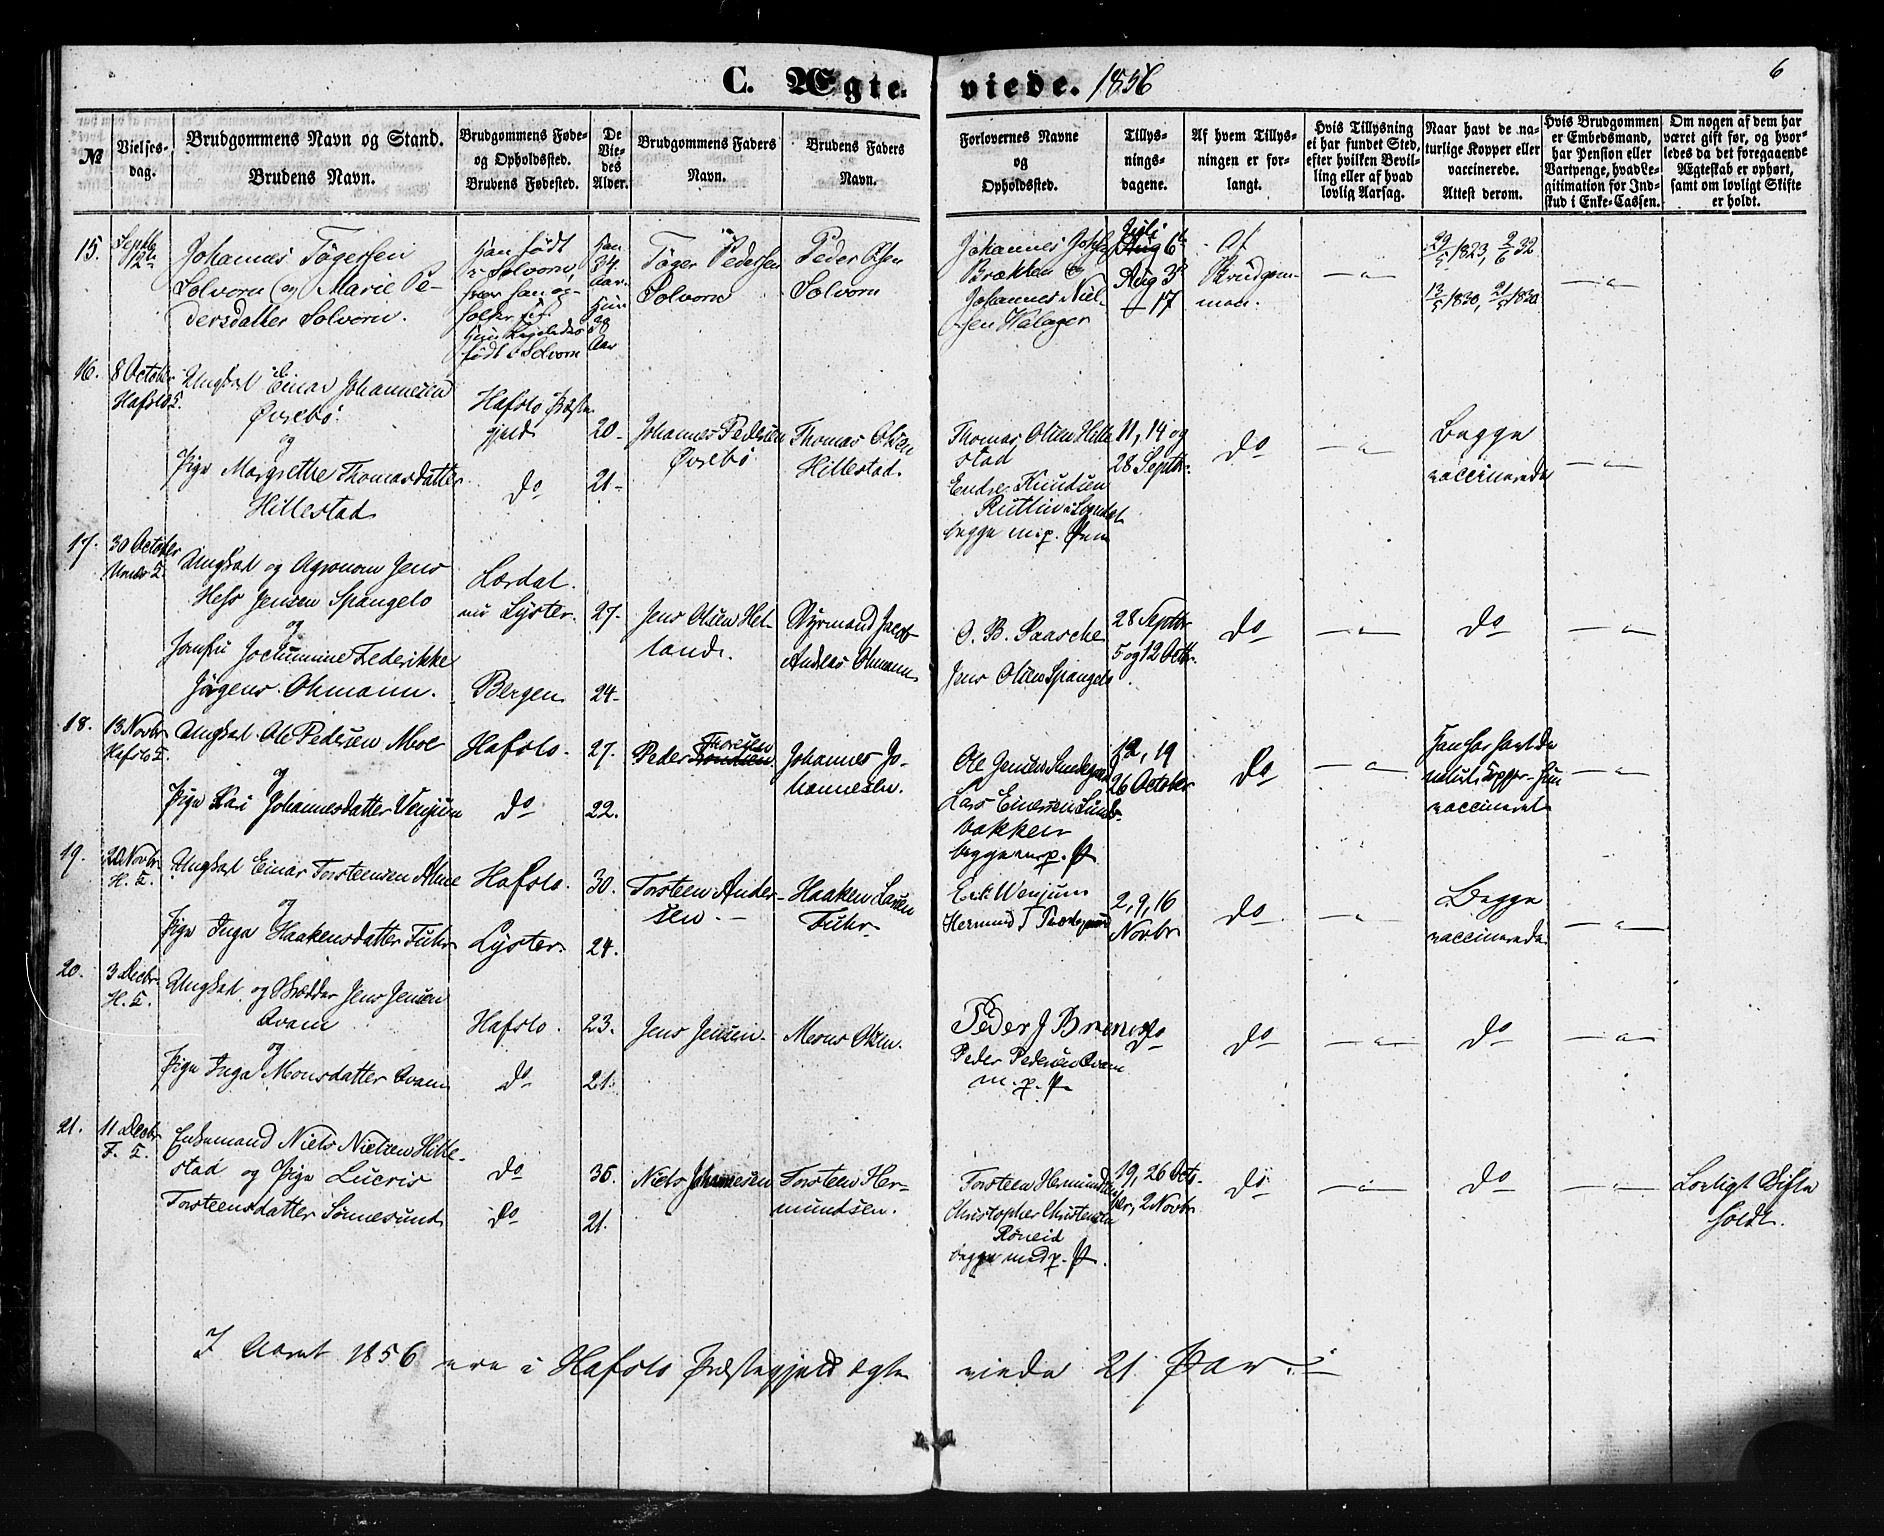 C. Ægte- viede. 1856
6
№
Vielses-
dag.
Brudgommens Navn og Stand.
Brudens Navn.
Brudgommens Føde-
og Opholdssted.
Brudens Fødested.
De
Vie-
des
Alder.
Brudgommens Faders
Navn.
Brudens Faders
Navn.
Forlovernes Navne
og
Opholdssted.
Tillys-
nings-
dagene.
Af hvem Tillys-
ningen er for-
langt.
Hvis Tillysning
ei har fundet Sted,
efter hvilken Bevil-
ling eller af hvad
lovlig Aarsag.
Naar havt de na-
turlige Kopper eller
vaccinerede.
Attest derom.
Hvis Brudgommen
er Embedsmand,
har Pension eller
Vartpenge, hvad Le-
gitimation for Ind-
skud i Enke-Cassen.
Om nogen af dem har
været gift før, og hvor-
ledes da det foregaaende
Ægteskab er ophørt,
samt om lovligt Skifte
er holdt.
15.
Septb
12te
Johannes Tøgersen
Solvorn og Marie Pe-
dersdatter Solvorn.
Han født
i Solvorn,
hvor han op-
holder sig.
Hun ligeledes
født i Solvorn
Han
34
Aar.
Hun
Aar
Tøger Pedersen
Solvorn
Peder Olsen
Solvorn
Johannes
Brækken og
Johannes Niel-
sen Halager
Juli
Aug 6te
Aug 3die
17
Af
Brudgom-
men.
29/5 1823, 9/6 32
13/5 1830, 21/5 1830.
16.
8 October
Hafslo K.
Ungkarl Einar Johannesen
Øvrebø
og
Pige Margrethe Thomasdatter
Hillestad
Hafslo Præste-
gjeld
do
20
21
Johannes Pedersen
Øvrebø
Thomas Olsen
Hillestad.
Thomas Olsen Hille-
stad
Endre Knudsen
Ruttlin i Sogndal
begge m. p. Pen
11, 14 og
28 Septbr.
do
Begge
vaccinerede
17.
30 October
Urnes K.
Ungkarl og Agronom Jens
Hess Jensen Spangelo
og
Jomfru Jochumine Federikke
Jørgens. Ohmann.
Lærdal.
nu Lyster.
Bergen
27
24
Jens Olsen Hel-
land.
Styrmand Jacob
Andreas Ohmann
O. B. Paasche
Jens Olsen Spangelo
28 Septbr
5 og 12 Octbr.
do
do
18.
13 Novbr
Hafslo K.
Ungkarl Ole Pedersen Moe
og
Pige Kari Johannesdatter Venjum
Hafslo.
do
27
22.
Peder Thoresen
Johannes Jo-
hannesen.
Ole Jensen
Lars Einersen Lund-
bakken
begge m. p. P.
12, 19
26 October
do
Han har havt de
naturl. Kopper. Hun
vaccineret
19.
20 Novbr
H. K.
Ungkarl Einar Torsteensen Alme
og
Pige Inga Haakensdatter Fuhr
Hafslo.
Lyster.
30.
24.
Torsteen Ander-
sen.
Haaken Larsen
Fuhr
Erik Wenjum
Hermund T
2, 9, 16
Novbr
do
Begge
vaccinerede
20.
3 Decbr
H. K.
Ungkarl og Skrædder Jens Jensen
Qvam
og
Pige Inga Monsdatter Qvam
Hafslo.
do
23.
21.
Jens Jensen.
Mons Olsen.
Peder J
Peder Pedersen Qvam
m. p. P.
do
do
do
21.
11 Decbr
F. K.
Enkemand Niels Nielsen Hille-
stad og Pige Lucris
Torsteensdatter Sønnesund
do
do
36.
21.
Niels Johannesen
Torsteen Her-
mundsen.
Torsteen Hermundsen
Christopher Christensen
Røneid
begge med p. P.
19, 26 Octo-
ber, 2 Novbr
do
do
Lovligt Skifte
holdt.
I Aaret 1856 ere i Hafslo Præstegjeld ægte viede 21 Par.